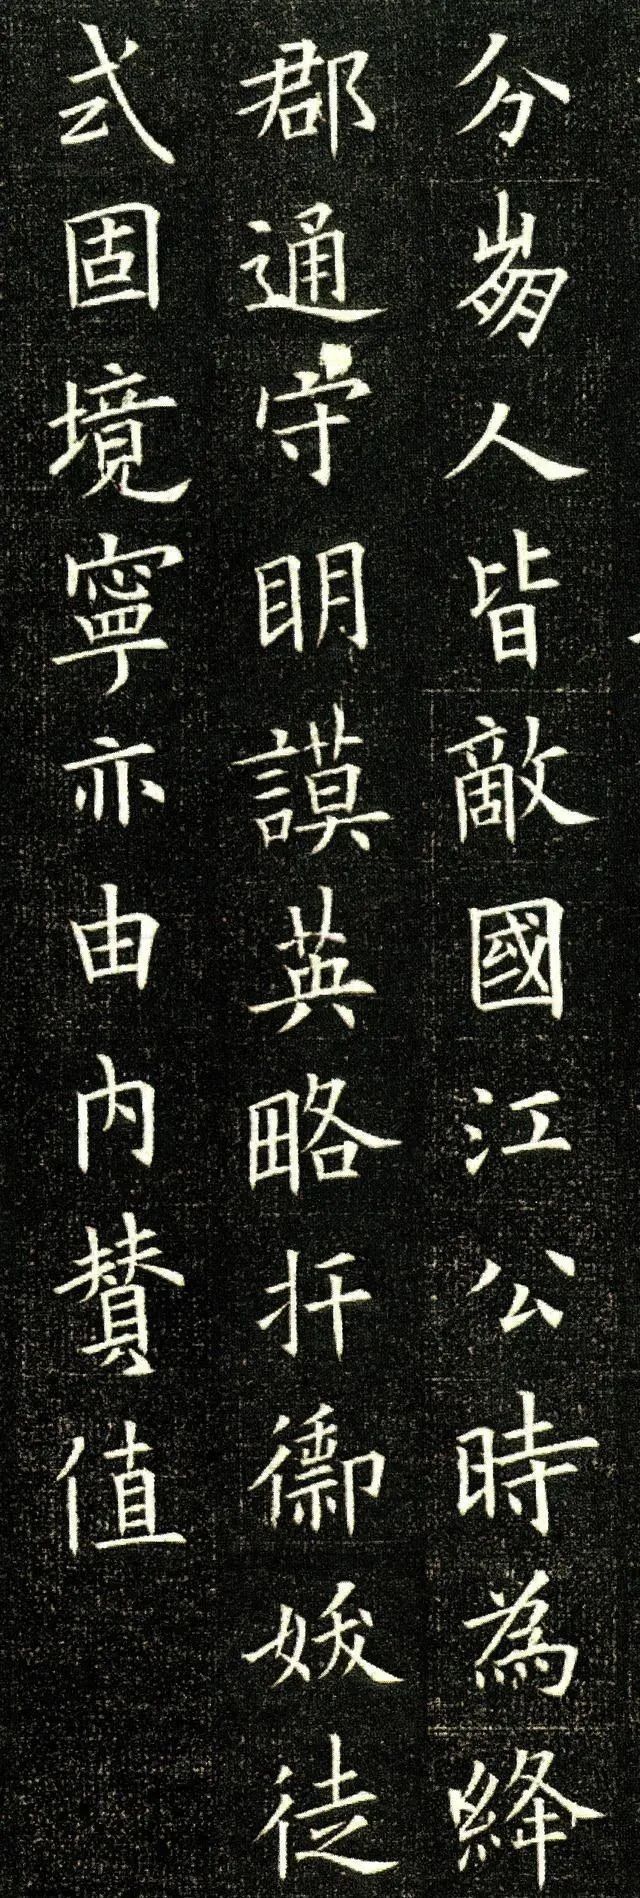 分崩人皆敵國江公時為絳
郡通守明謨英略扞禦妖徒
式固境寧亦由内賛值